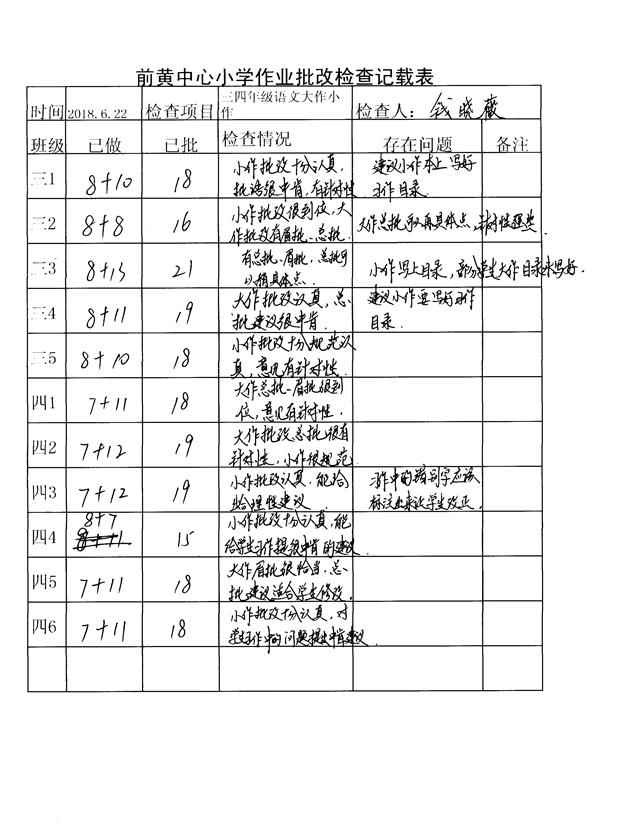 前黄中心小学作业批改检查记载表
时间 2018.6.22 检查项目 三四年级语文大作小作 检查人：钱晓薇
班级 已做 已批 检查情况 存在问题 备注
三1 8+10 18 小作批改十分认真, 建议小作本上写好
批语很中肯, 有针对性 习作目录.
三2 8+8 16 小作批改很到位, 大 大作总批可以再具体点, 针对性强些.
作批改有眉批、总批.
三3 8+13 21 有总批、眉批, 总批可 小作写上目录, 部分学生大作目录未写好.
以稍具体点.
三4 8+11 19 大作批改认真, 总 建议小作要写好习作
批建议很中肯. 目录.
三5 8+10 18 小作批改十分规范认
真, 意见有针对性.
四1 7+11 18 大作总批、眉批很到
位, 意见有针对性.
四2 7+12 19 大作批改总批很有
针对性, 小作很规范
四3 7+12 19 小作批改认真, 能给 习作中的错别字应该
出合理性建议. 标注出来让学生改正.
8+7
四4 8+11 15 小作批改十分认真, 能
给学生习作提很中肯的建议.
四5 7+11 18 大作眉批很恰当, 总
批建议适合学生修改.
四6 7+11 18 小作批改十分认真, 对
学生习作中的问题提出中肯建议.